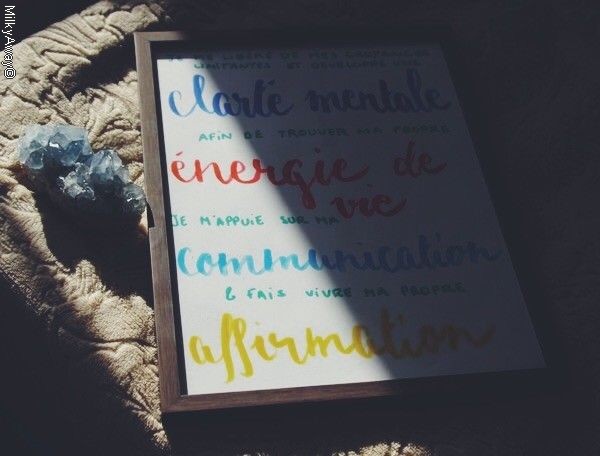 JE ME LIBÈRE DE MES CROYANCES
LIMITANTES ET DÉVELOPPE UNE
clarté mentale
AFIN DE TROUVER MA PROPRE
énergie de
vie
JE M'APPUIE SUR MA
communication
& FAIS VIVRE MA PROPRE
affirmation
MilkyAway@